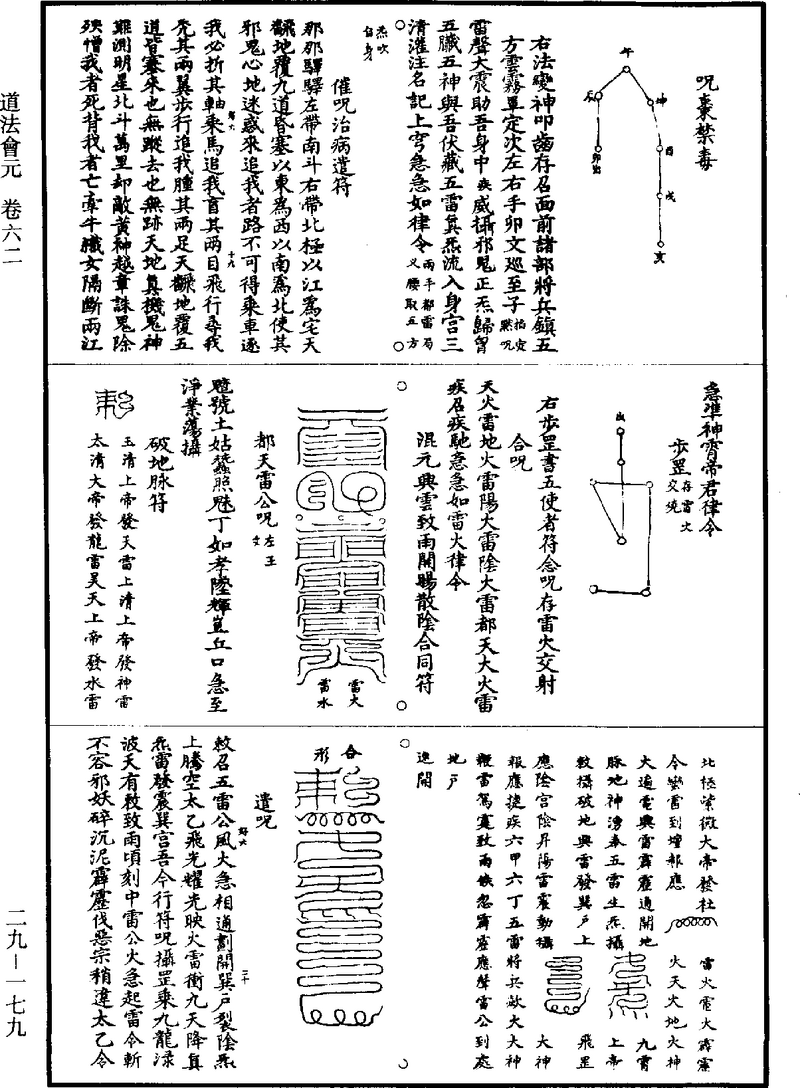 道法會元 卷六二
二九—一七九
呪棗禁毒
午
坤
酉
戌
亥
辰
右法變神叩齒存召面前諸部將兵鎮五
方雲霧單定次左右手卯文巡至子掐寅默呪
雷聲大震助吾身中疾威攝邪鬼正炁歸胷
五臟五神與吾伏藏五雷真炁流入身宮三
清灌注名記上穹急急如律令兩手都雷局叉腰取五方
炁吹自身
催呪治病遣符
那那驛驛左帶南斗右帶北極以江爲宅天
飜地覆九道昏塞以東爲西以南爲北使其
邪鬼心地迷惑來追我者路不可得乘車逐
我必折其軸乘馬追我盲其兩目飛行尋我
禿其兩翼步行追我腫其兩足天飜地覆五
道皆塞來也無蹤去也無跡天地真機鬼神
難測明星北斗萬里却敵黃神越章誅鬼除
殃憎我者死背我者亡牽牛織女隔斷兩江
急準神霄帝君律令
步罡存雷火交燒
出
右步罡書五使者符念呪存雷火交射
合呪
天火雷地火雷陽火雷陰火雷都天大火雷
疾召疾馳急急如雷火律令
混元興雲致雨開暘散陰合同符
雷火
雷水
都天雷公呪
魒號土姑蠶照魅丁如孝隆輝崑丘口急至
淨業蕩攝
破地脉符
玉清上帝發天雷上清上帝發神雷
太清大帝發龍雷昊天上帝發水雷
北極紫微大帝發社
令蠻雷到壇報應
大遍電興雷霹靂通開地
脉地神湧泰五雷生炁攝
敕攝破地興雷發巽戶上
應陰宮陰昇陽雷震動攝
報應捷疾六甲六丁五雷將兵歘火大神
鞭雷駕霆致雨倏忽霹靂應聲雷公到處
地戶
進開
雷火電火霹靂
火天火地火神
九霄
上帝
飛罡
大神
合形
遣呪
敕召五雷公風火急相通劃開巽戶裂陰炁
上騰空太乙飛光耀光映火雷衝九天降真
炁雷發震巽宮吾今行符呪攝罡乘九龍渌
波天有敕致雨頃刻中雷公火急起雷令斬
不容邪妖碎沉泥霹靂伐惡宗稍違太乙令